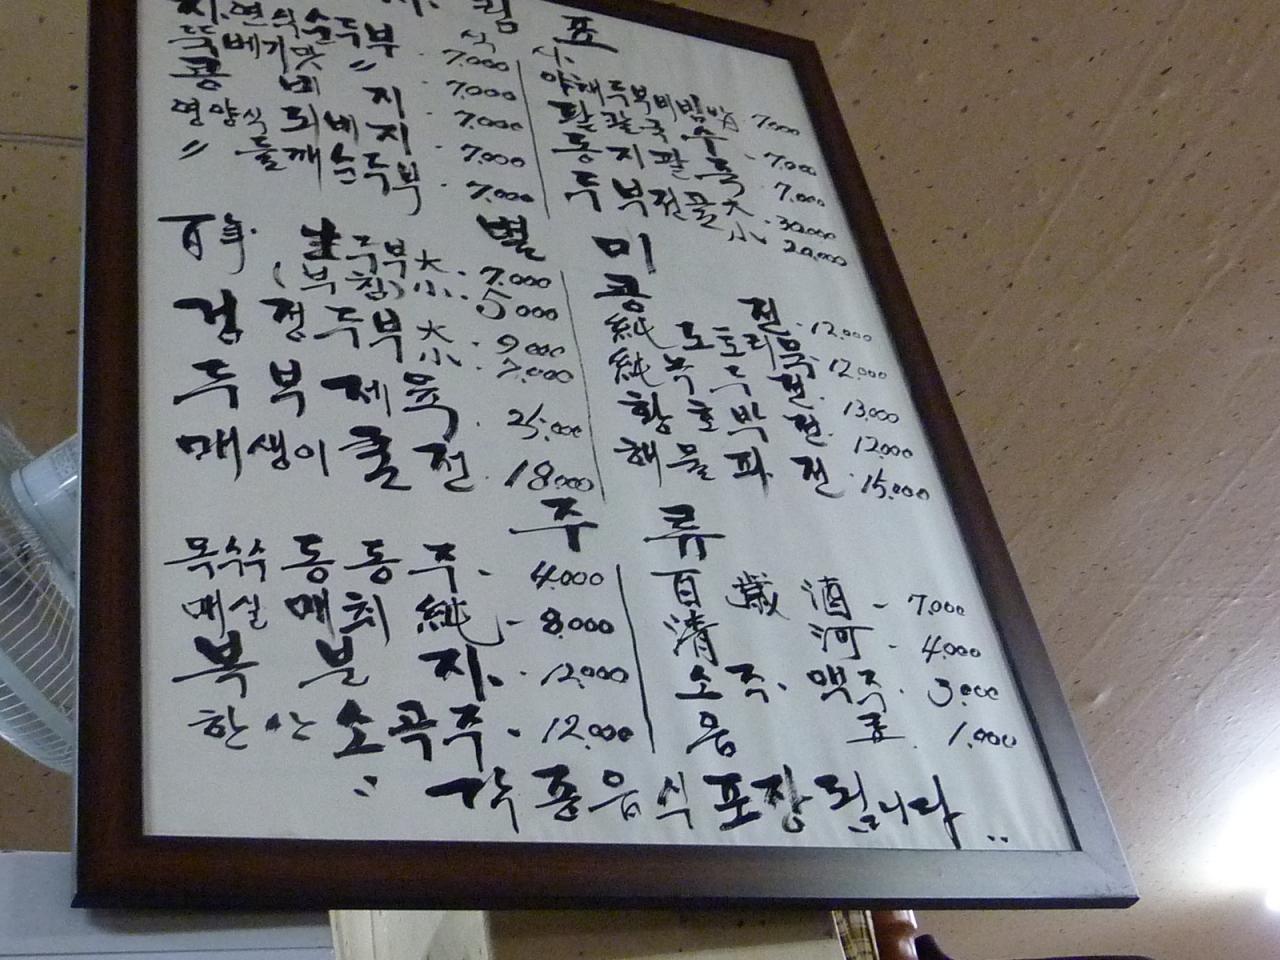 차림표
식 사
자연식순두부 7,000
뚝배기맛 〃 7,000
콩비지 7,000
영양식 되비지 7,000
〃 들깨순두부 7,000
야채두부비빔밥 7,000
팥칼국수 7,000
동지팥죽 7,000
두부전골 大 30,000
小 20,000
별 미
生두부 大 7,000
(부침) 小 5,000
검정두부 大 9,000
小 7,000
두부제육 25,000
매생이굴전 18,000
콩전 12,000
純 도토리묵 12,000
純 녹두전 13,000
황호박전 12,000
해물파전 15,000
주 류
옥수수 동동주 4,000
매실 매취純 8,000
복분자 12,000
한산소곡주 12,000
百歲酒 7,000
淸河 4,000
소주, 맥주 3,000
음료 1,000
각종음식포장됩니다